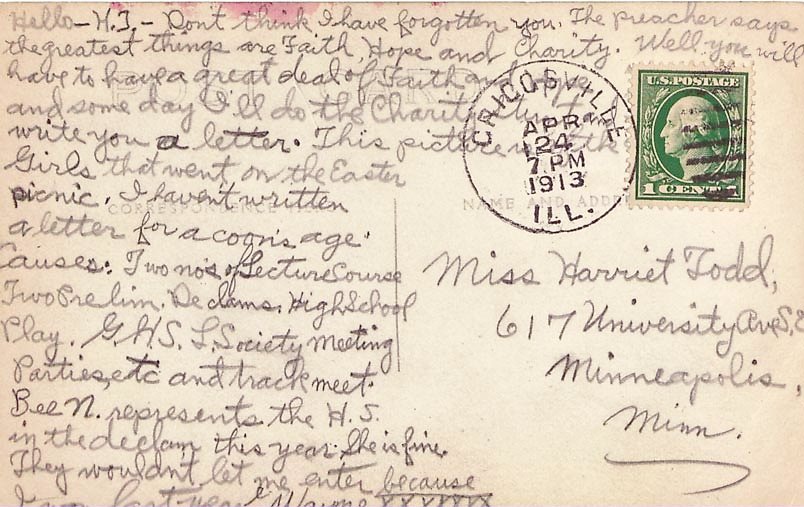 Hello - H.T. - Dont think I have forgotten you. The preacher says
the greatest things are Faith, Hope and Charity. Well you will
have to have a great deal of Faith and
and some day I'll do the Charity
write you a letter. This picture
Girls that went on the Easter
picnic. I haven't written
a letter for a coon's age.
Causes: Two no's of Lecture Course
Two Prelim. Declams. High School
Play. G.H.S. L. Society Meeting
Parties, etc and track meet.
Bee N. represents the H.S.
in the declam this year. She is fine.
They wouldn't let me enter because
last year
XXXXXXX
POST CARD
CORRESPONDENCE
NAME AND ADDRE
GRIGGSVILLE
APR
24
7 PM
1913
ILL.
U.S. POSTAGE
1 CENT
Miss Harriet Todd,
617 University Av. S.E
Minneapolis,
Minn.